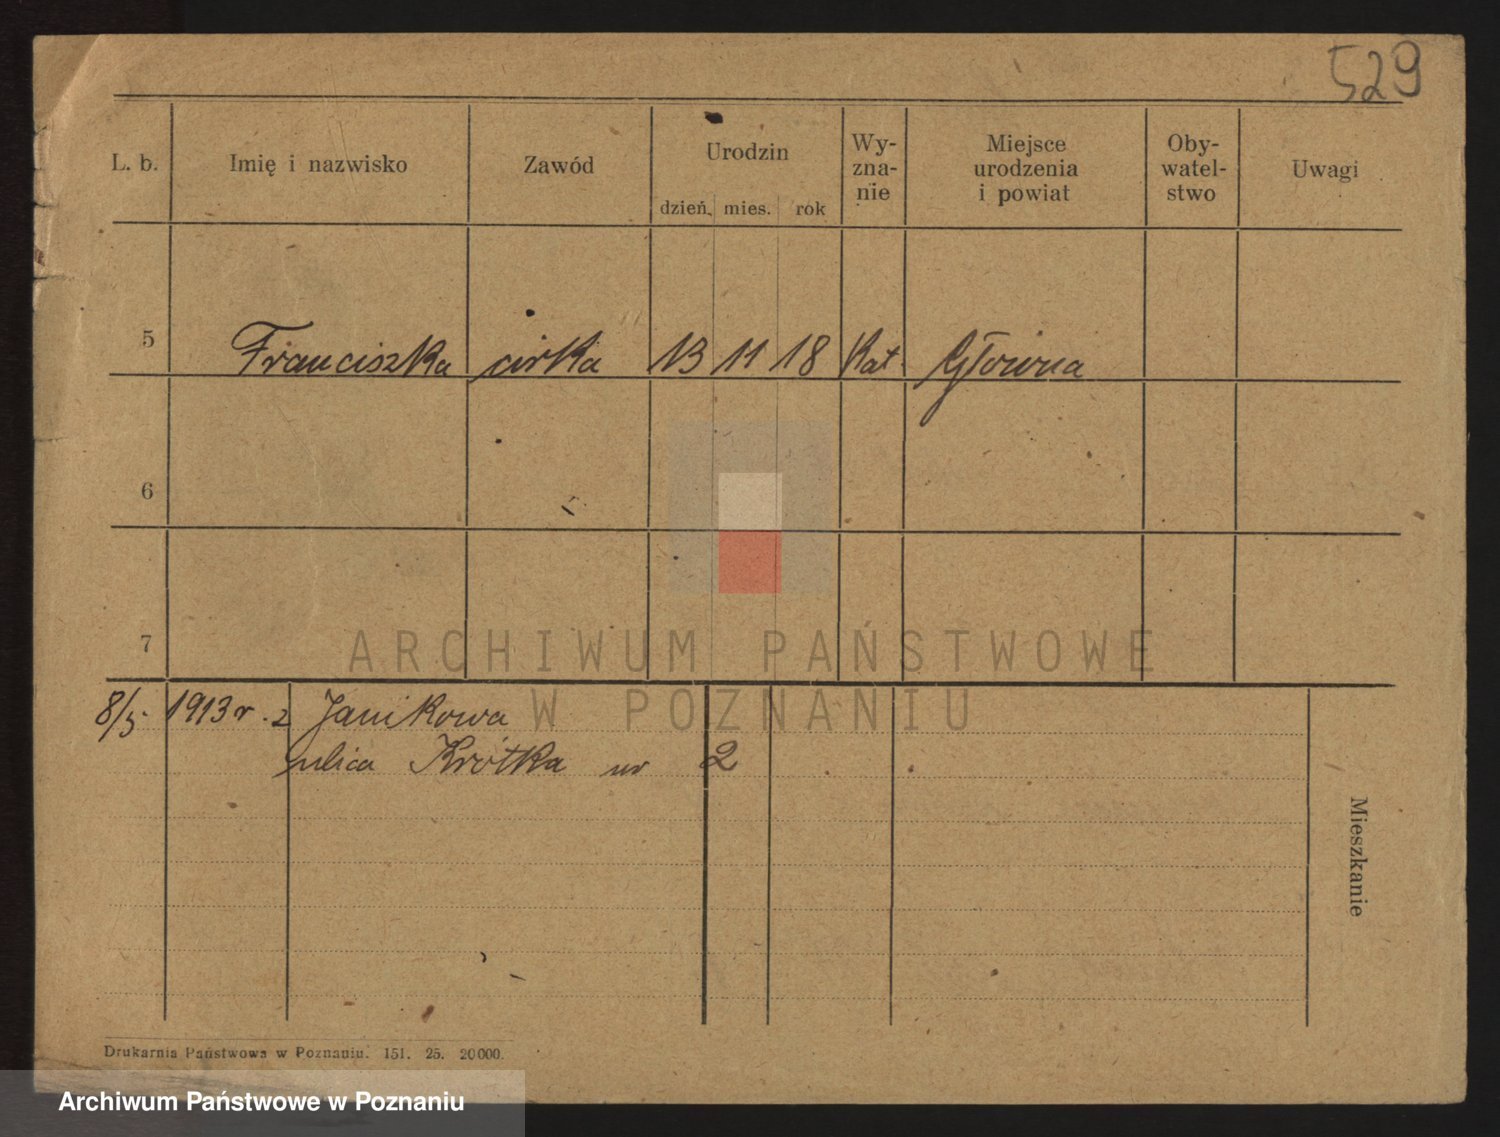 529
L. b. Imię i nazwisko Zawód Urodzin Wy-zna-nie Miejsce urodzenia i powiat Oby-watel-stwo Uwagi
dzień. mies. rok
5 Franciszka cirka 13 11 18 Kat. Główna
6
7
ARCHIWUM PAŃSTWOWE
W POZNANIU
8/5. 1913 r. z Janikowa
ulica Krótka nr 2
Mieszkanie
Drukarnia Państwowa w Poznaniu. 151. 25. 20000.
Archiwum Państwowe w Poznaniu